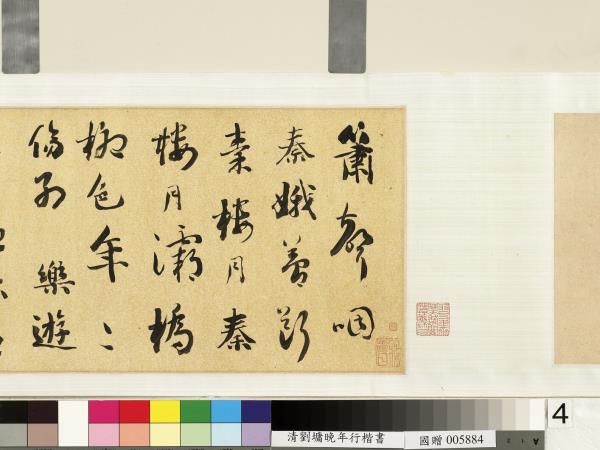 簫聲咽
秦娥夢斷
秦樓月秦
樓月灞橋
柳色年〻
傷別樂遊
清劉墉晚年行楷書
國贈 005884
4